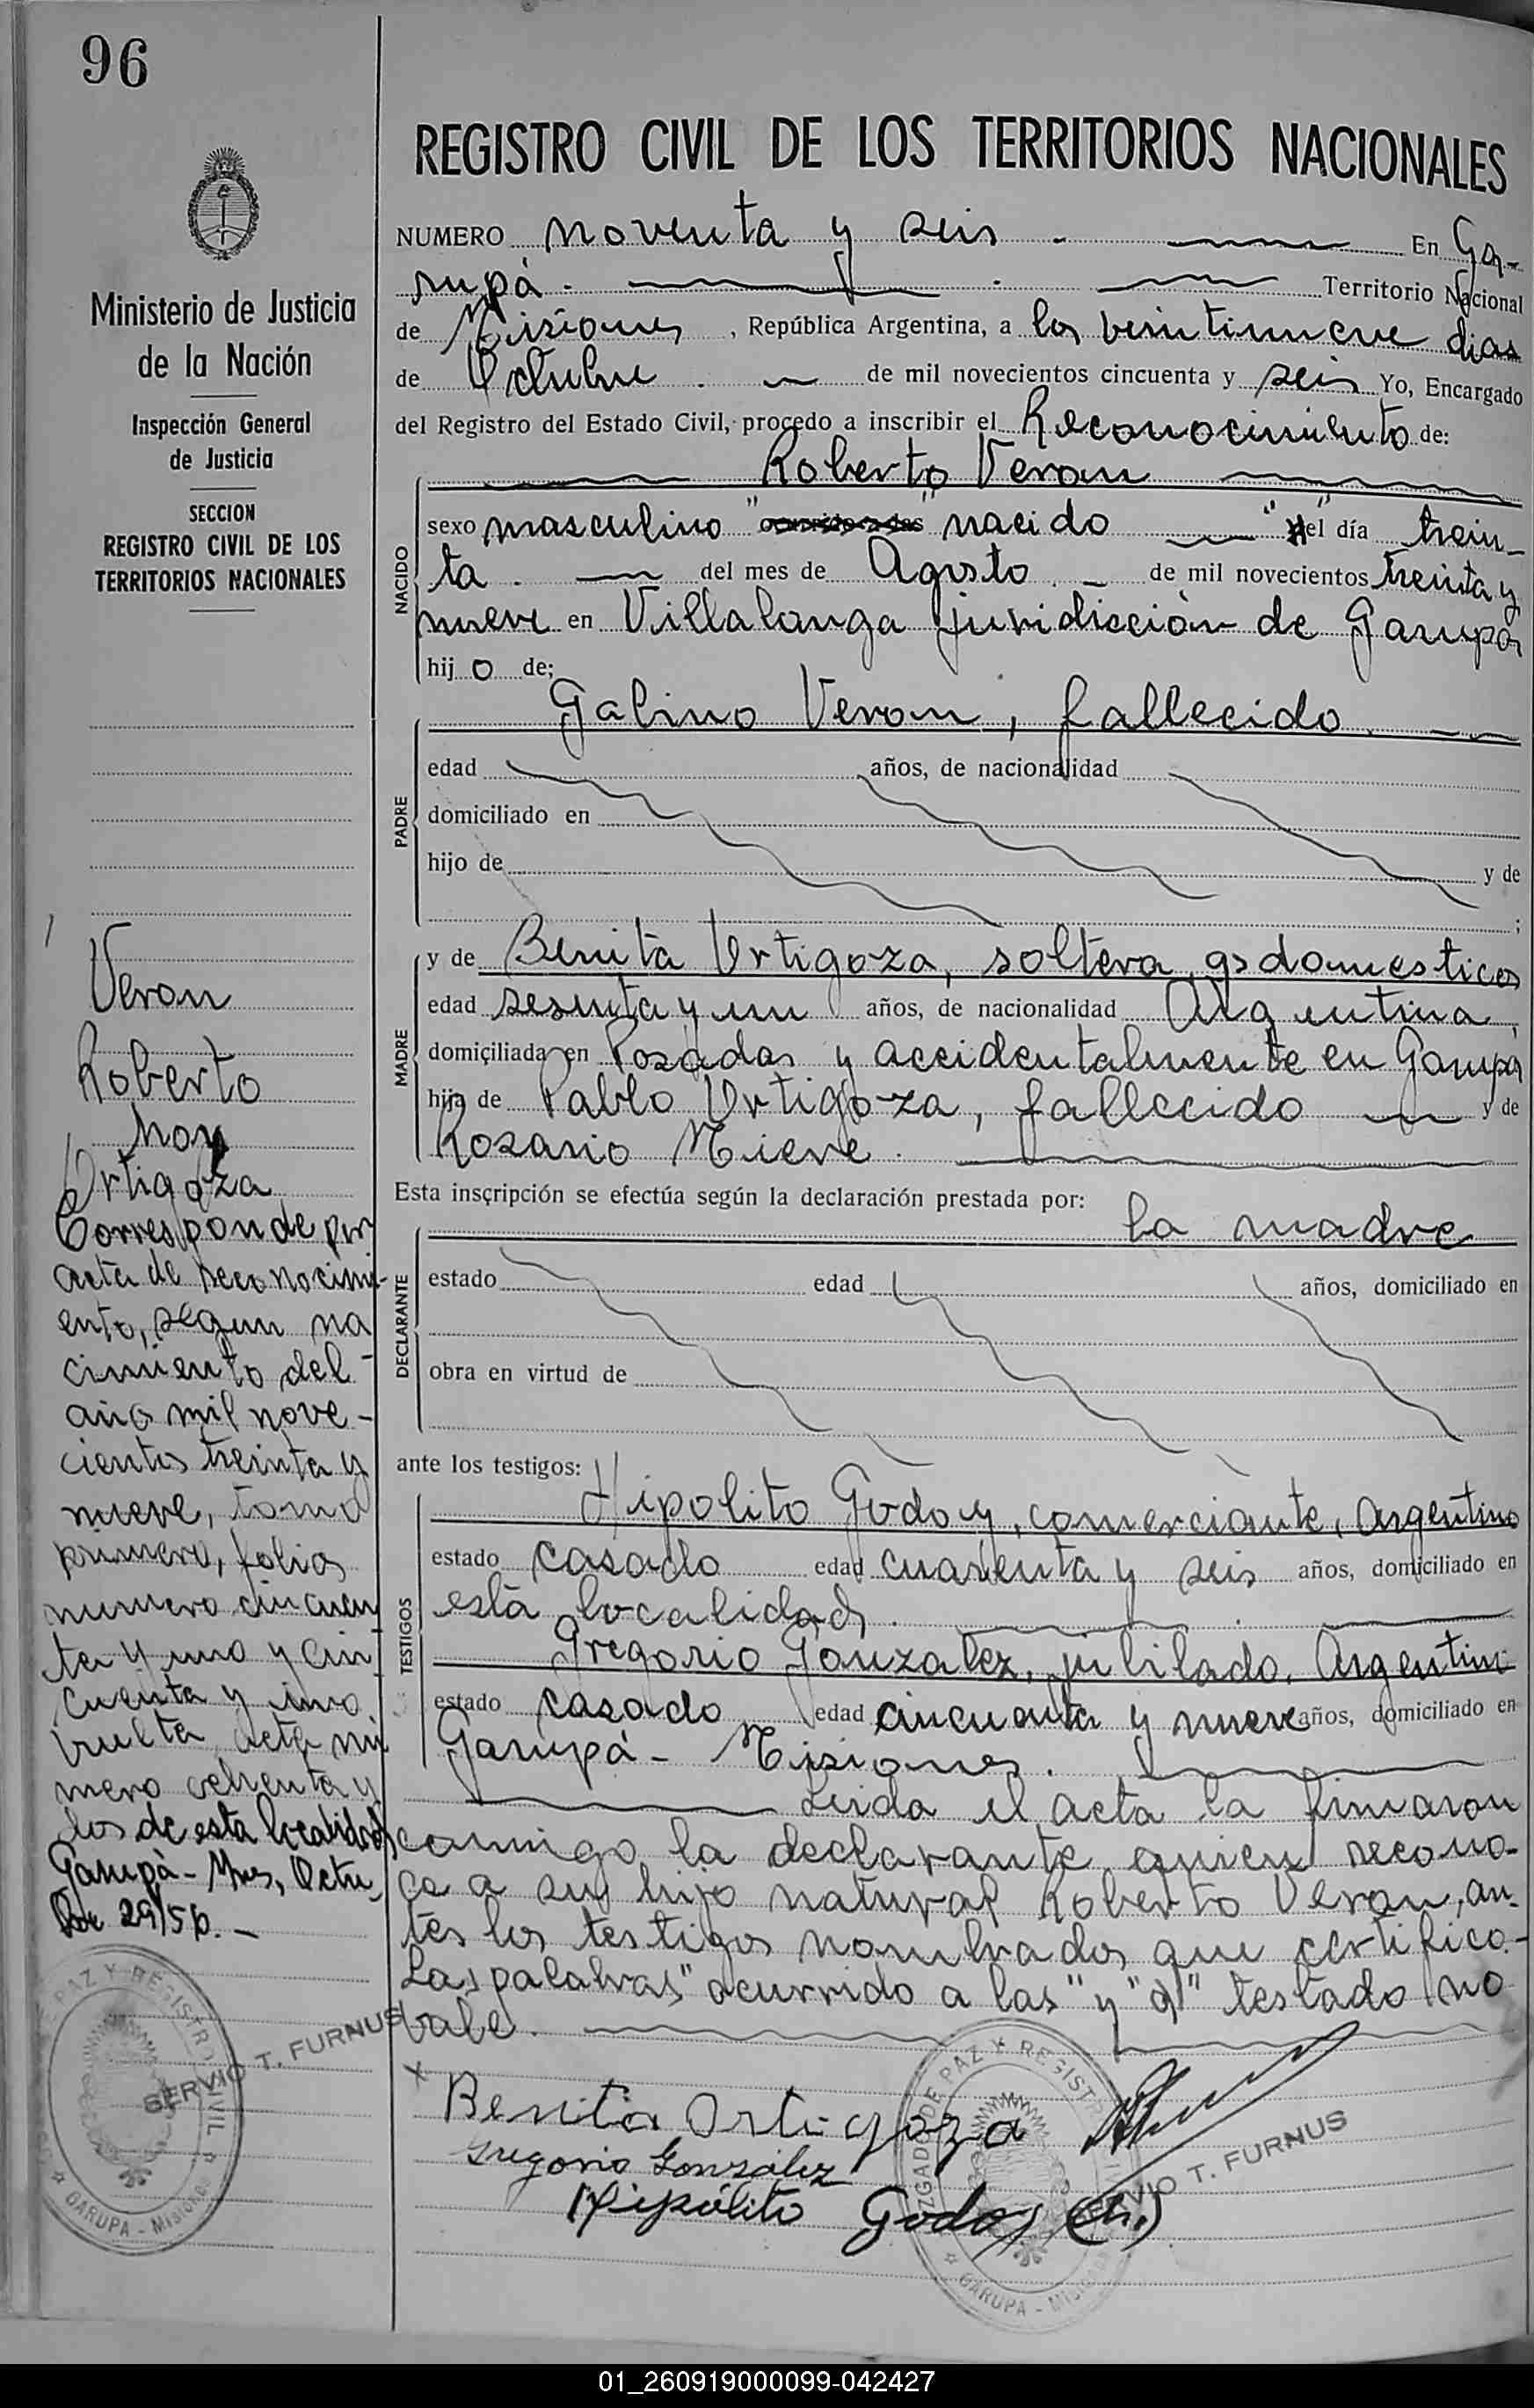 96
Ministerio de Justicia
de la Nación
Inspección General
de Justicia
SECCION
REGISTRO CIVIL DE LOS
TERRITORIOS NACIONALES
Veron
Roberto
hoy
Ortigoza
Corresponde por
acta de reconocimi-
ento, segun na
cimiento del
año mil nove-
cientos treinta y
nueve, tomo
primero, folios
numero cincuen
ta y uno y cin
cuenta y uno
vuelta, acta nu
mero ochenta y
dos de esta localidad
Garupà - Mnes, Octu
bre 29/56.-
PAZ Y REGISTRO CIVIL
GARUPA - Misiones
SERVIO T. FURNUS
REGISTRO CIVIL DE LOS TERRITORIOS NACIONALES
NUMERO noventa y seis - En Ga-
rupà. Territorio Nacional
de Misiones, República Argentina, a los veintinueve dias
de Octubre. de mil novecientos cincuenta y seis Yo, Encargado
del Registro del Estado Civil, procedo a inscribir el Reconocimiento de:
Roberto Veron
NACIDO
sexo masculino "ocurrido a las" nacido "d"el día trein-
ta. del mes de Agosto. - de mil novecientos treinta y
nueve en Villalonga juridicciòn de Garupà
hij o de;
Galino Veron, fallecido.
PADRE
edad años, de nacionalidad
domiciliado en
hijo de y de
;
MADRE
y de Benita Ortigoza, soltera, qs domesticos
edad sesenta y un años, de nacionalidad Argentina,
domiçiliada en Posadas y accidentalmente en Garupa
hija de Pablo Ortigoza, fallecido y de
Rosario Nieve.
Esta insçripción se efectúa según la declaración prestada por:
la madre
DECLARANTE
estado edad años, domiciliado en
obra en virtud de
ante los testigos:
Hipolito Godoy, comerciante, Argentino
TESTIGOS
estado casado edad cuarenta y seis años, domiciliado en
està localidad.
Gregorio Gonzalez, jubilado, Argentino
estado casado edad cincuenta y nueve años, domiciliado en
Garupà - Misiones.
Leida el acta la firmaron
conmigo la declarante quien recono-
ce a su hijo natural Roberto Veron, an-
tes los testigos nombrados que certifico.-
Las palabras "ocurrido a las" y "d" testado no
vale.
x
Benita Ortigoza
Gregorio González
Hipólito Godoy (h.)
JUZGADO DE PAZ Y REGISTRO CIVIL
GARUPA - Misiones
SERVIO T. FURNUS
01_260919000099-042427